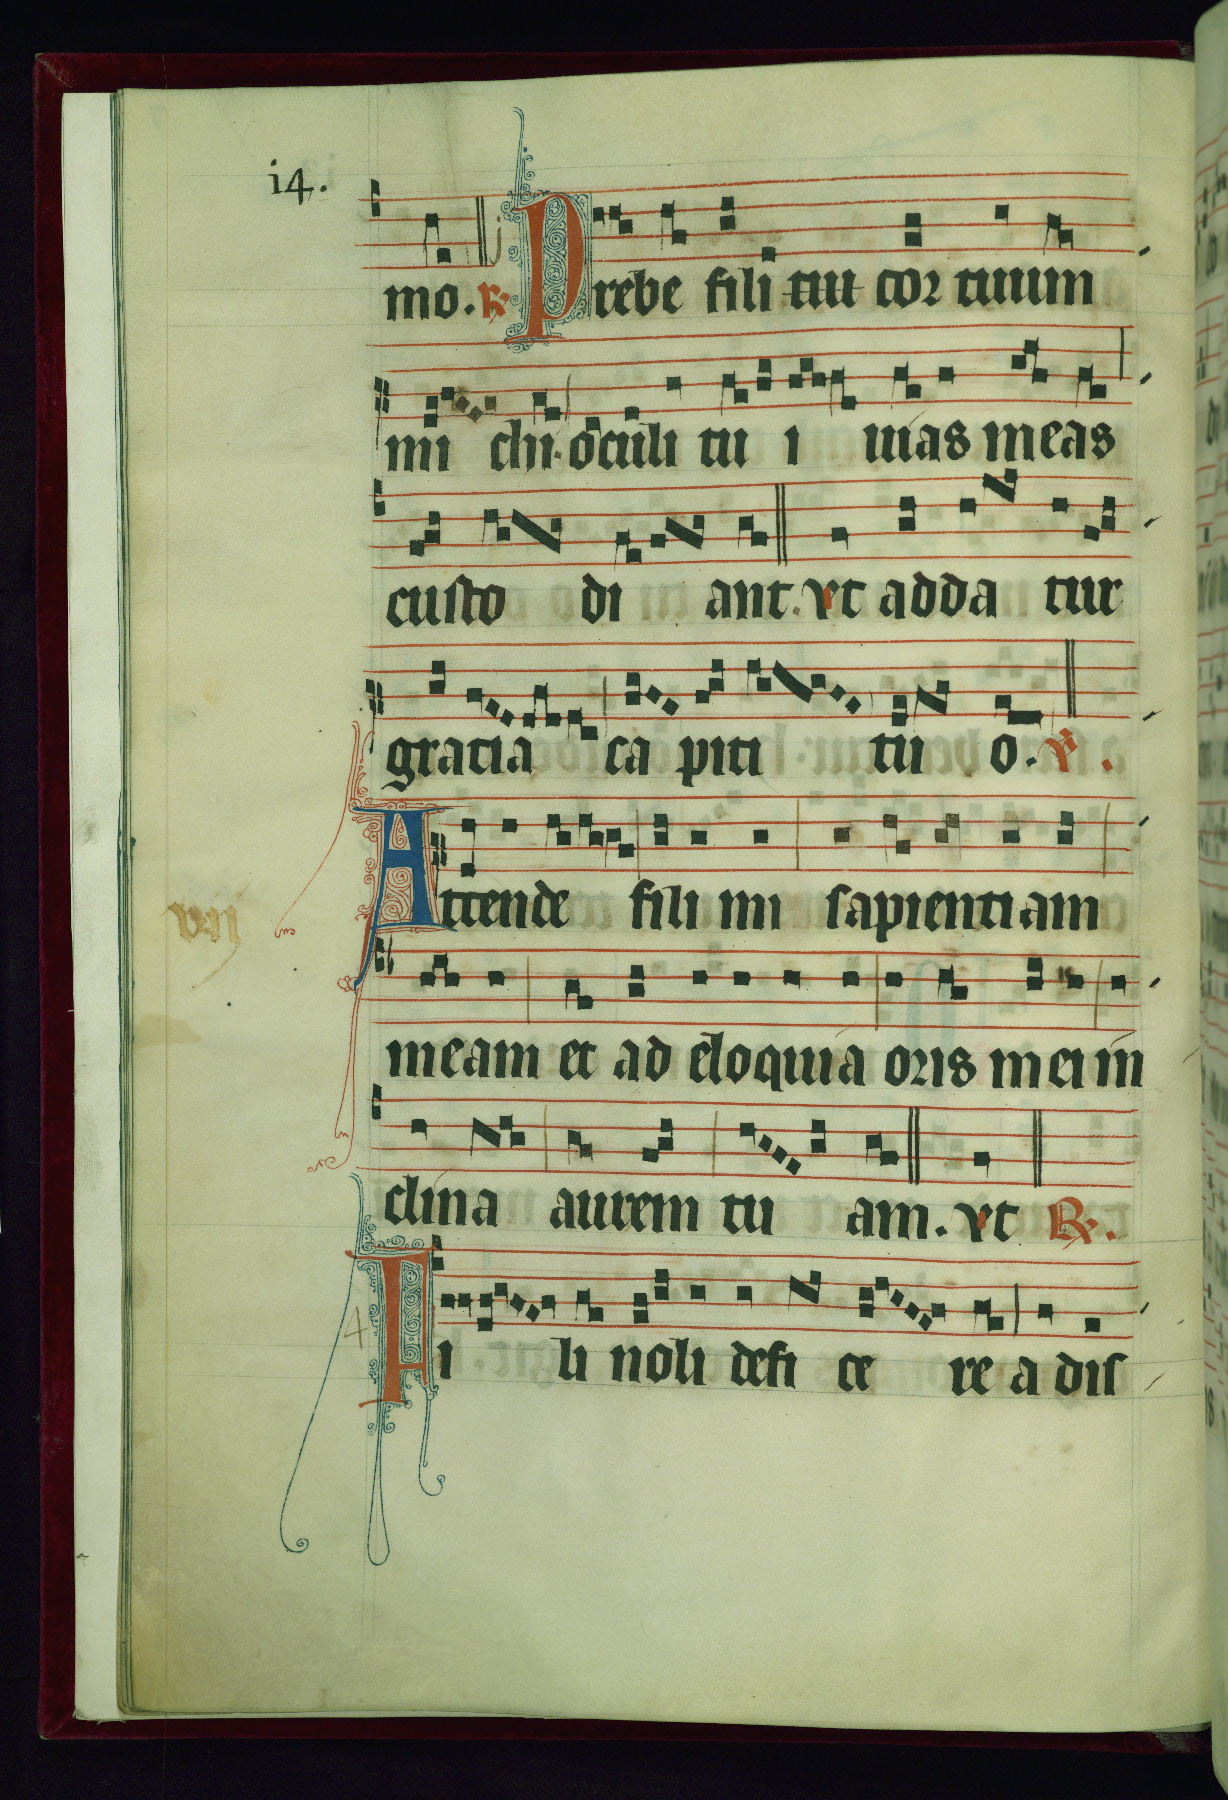 i4.
mo. ℟ Prebe fili tuu cor tuum
mi chi. oculi tu i uias meas
custo di ant. vt adda tur
gratia ca piti tu o. ℣.
Attende fili mi sapientiam
meam et ad eloquia oris mei in
clina aurem tu am. vt ℟.
4
Fi li noli defi ce re a dis